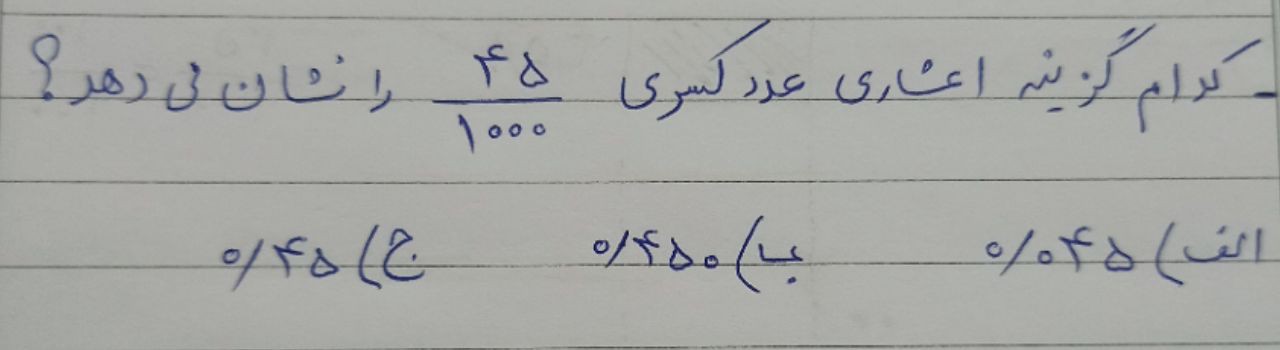 - کدام گزینه اعشاری عدد کسری ۴۵/۱۰۰۰ را نشان می دهد؟
الف) ۰/۰۴۵ ب) ۰/۴۵۰ ج) ۰/۴۵